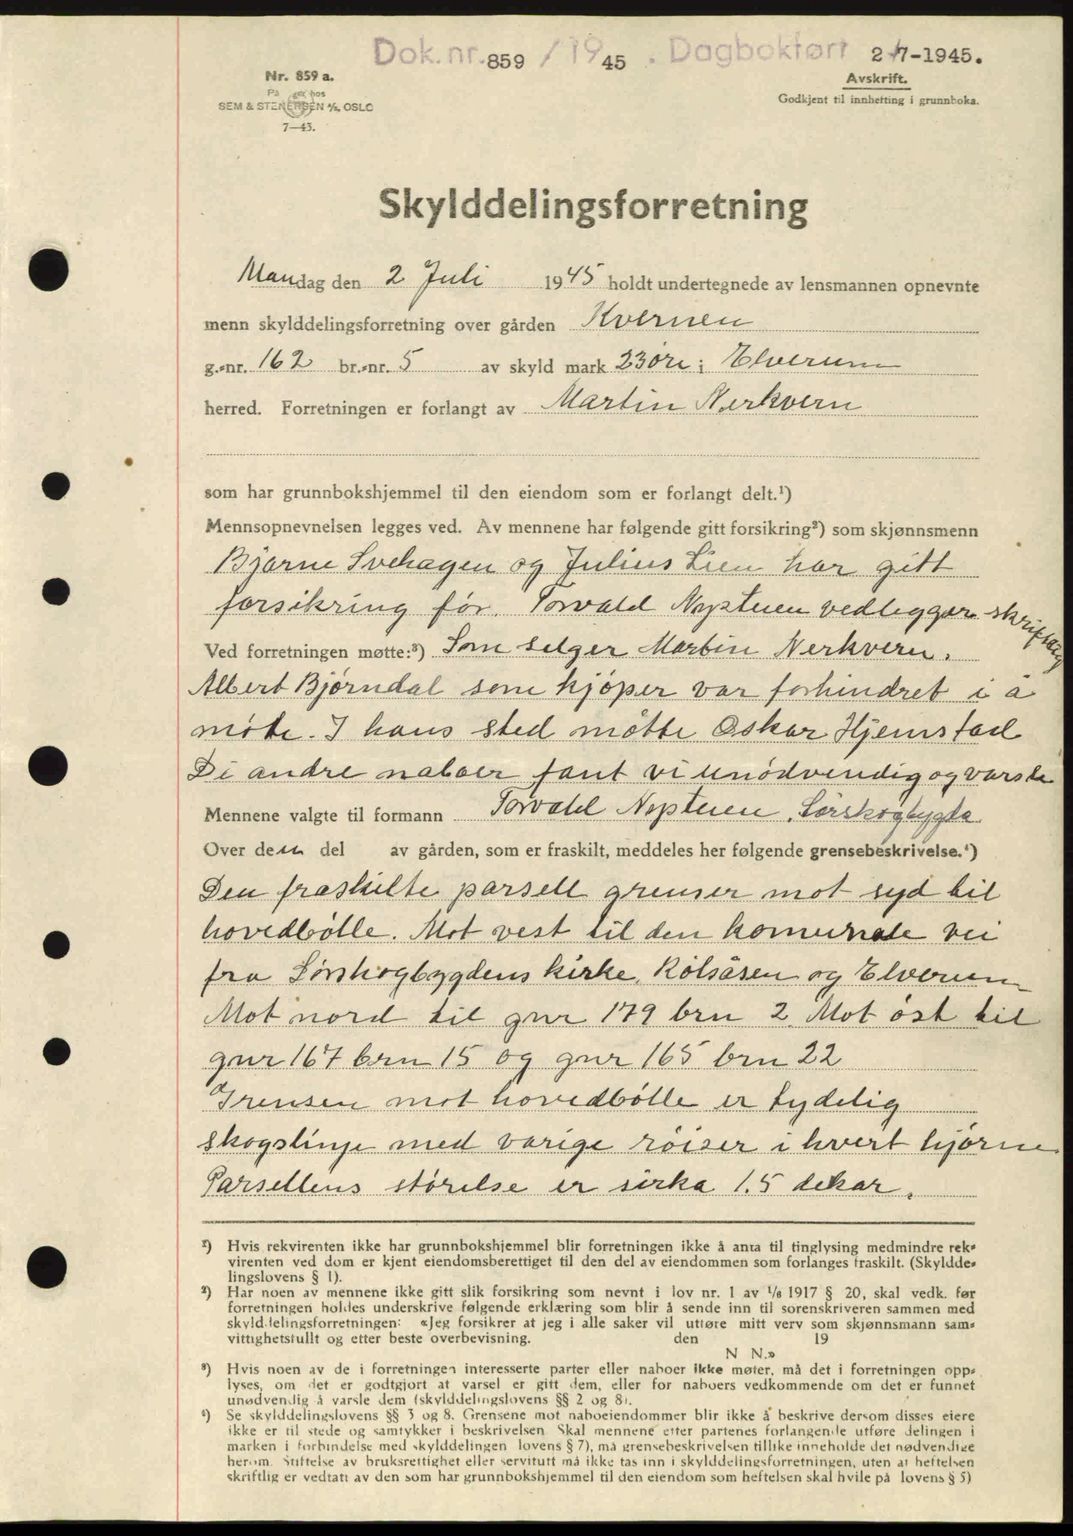 Dok.nr. 859 / 1945. Dagbokført 2/7-1945.
Nr. 859 a.
SEM & STENERSEN A/S, OSLO
7—43.
Avskrift.
Godkjent til innhefting i grunnboka.
Skylddelingsforretning
Mandag den 2 Juli 1945 holdt undertegnede av lensmannen opnevnte
menn skylddelingsforretning over gården Kvernen
g.-nr. 162 br.-nr. 5 av skyld mark 23 øre i Elverum
herred. Forretningen er forlangt av Martin Nerkvern
som har grunnbokshjemmel til den eiendom som er forlangt delt.¹)
Mennsopnevnelsen legges ved. Av mennene har følgende gitt forsikring²) som skjønnsmenn
Bjarne Svehagen og Julius Lien har gitt
forsikring før. Torvald Nystuen vedlegger skriftlig
Ved forretningen møtte:³) Som selger Martin Nerkvern.
Albert Bjørndal som kjøper var forhindret i å
møte. I hans sted møtte Oskar Hjemstad
De andre naboer fant vi unødvendig og varsle
Mennene valgte til formann Torvald Nystuen, Sørskogbygda
Over den del av gården, som er fraskilt, meddeles her følgende grensebeskrivelse.⁴)
Den fraskilte parsell grenser mot syd til
hovedbølle. Mot vest til den komunale vei
fra Sørskogbygdens kirke, Kølsåsen og Elverum
Mot nord til gnr 179 brn 2. Mot øst til
gnr 167 brn 15 og gnr 165 brn 22
Grensen mot hovedbølle er tydelig
skogslinje med varige røiser i hvert hjørne
Parsellens størelse er sirka 1.5 dekar.
¹) Hvis rekvirenten ikke har grunnbokshjemmel blir forretningen ikke å anta til tinglysing medmindre rek-
virenten ved dom er kjent eiendomsberettiget til den del av eiendommen som forlanges fraskilt. (Skyldde-
lingslovens § 1).
²) Har noen av mennene ikke gitt slik forsikring som nevnt i lov nr. 1 av 1/6 1917 § 20, skal vedk. før
forretningen holdes underskrive følgende erklæring som blir å sende inn til sorenskriveren sammen med
skylddelingsforretningen: «Jeg forsikrer at jeg i alle saker vil utføre mitt verv som skjønnsmann sam-
vittighetsfullt og etter beste overbevisning. den 19
N N.»
³) Hvis noen av de i forretningen interesserte parter eller naboer ikke møter, må det i forretningen opp-
lyses, om det er godtgjort at varsel er gitt dem, eller for naboers vedkommende om det er funnet
unødvendig å varsle dem (skylddelingslovens §§ 2 og 8).
⁴) Se skylddelingslovens §§ 3 og 8. Grensene mot naboeiendommer blir ikke å beskrive dersom disses eiere
ikke er til stede og samtykker i beskrivelsen. Skal mennene etter partenes forlangende utføre delingen i
marken i forbindelse med skylddelingen (lovens § 7), må grensebeskrivelsen tillike inneholde det nødvendige
herom. Stiftelse av bruksrettighet eller servitutt må ikke tas inn i skylddelingsforretningen, uten at heftelsen
skriftlig er vedtatt av den som har grunnbokshjemmel til den eiendom som heftelsen skal hvile på (lovens § 5)